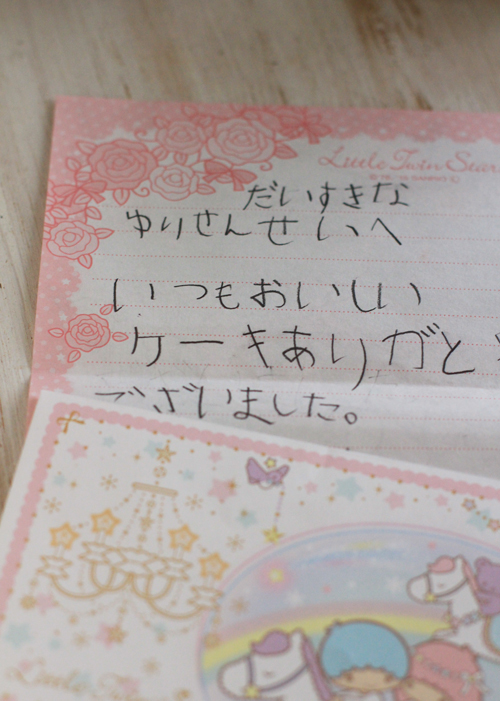 Little Twin Star
だいすきな
ゆりせんせいへ
いつもおいしい
ケーキありがと
ございました。
Little Twin